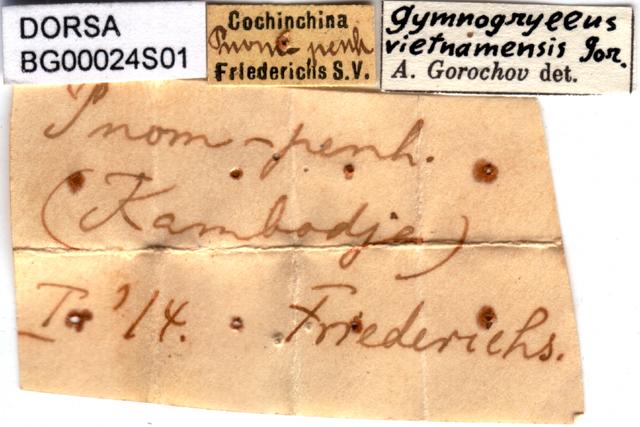 DORSA
BG00024S01
Cochinchina
Pnom penh
Friederichs S.V.
Gymnogryllus
vietnamensis Gor.
A. Gorochov det.
Pnom-penh.
(Kambodja)
I. '14. Friederichs.